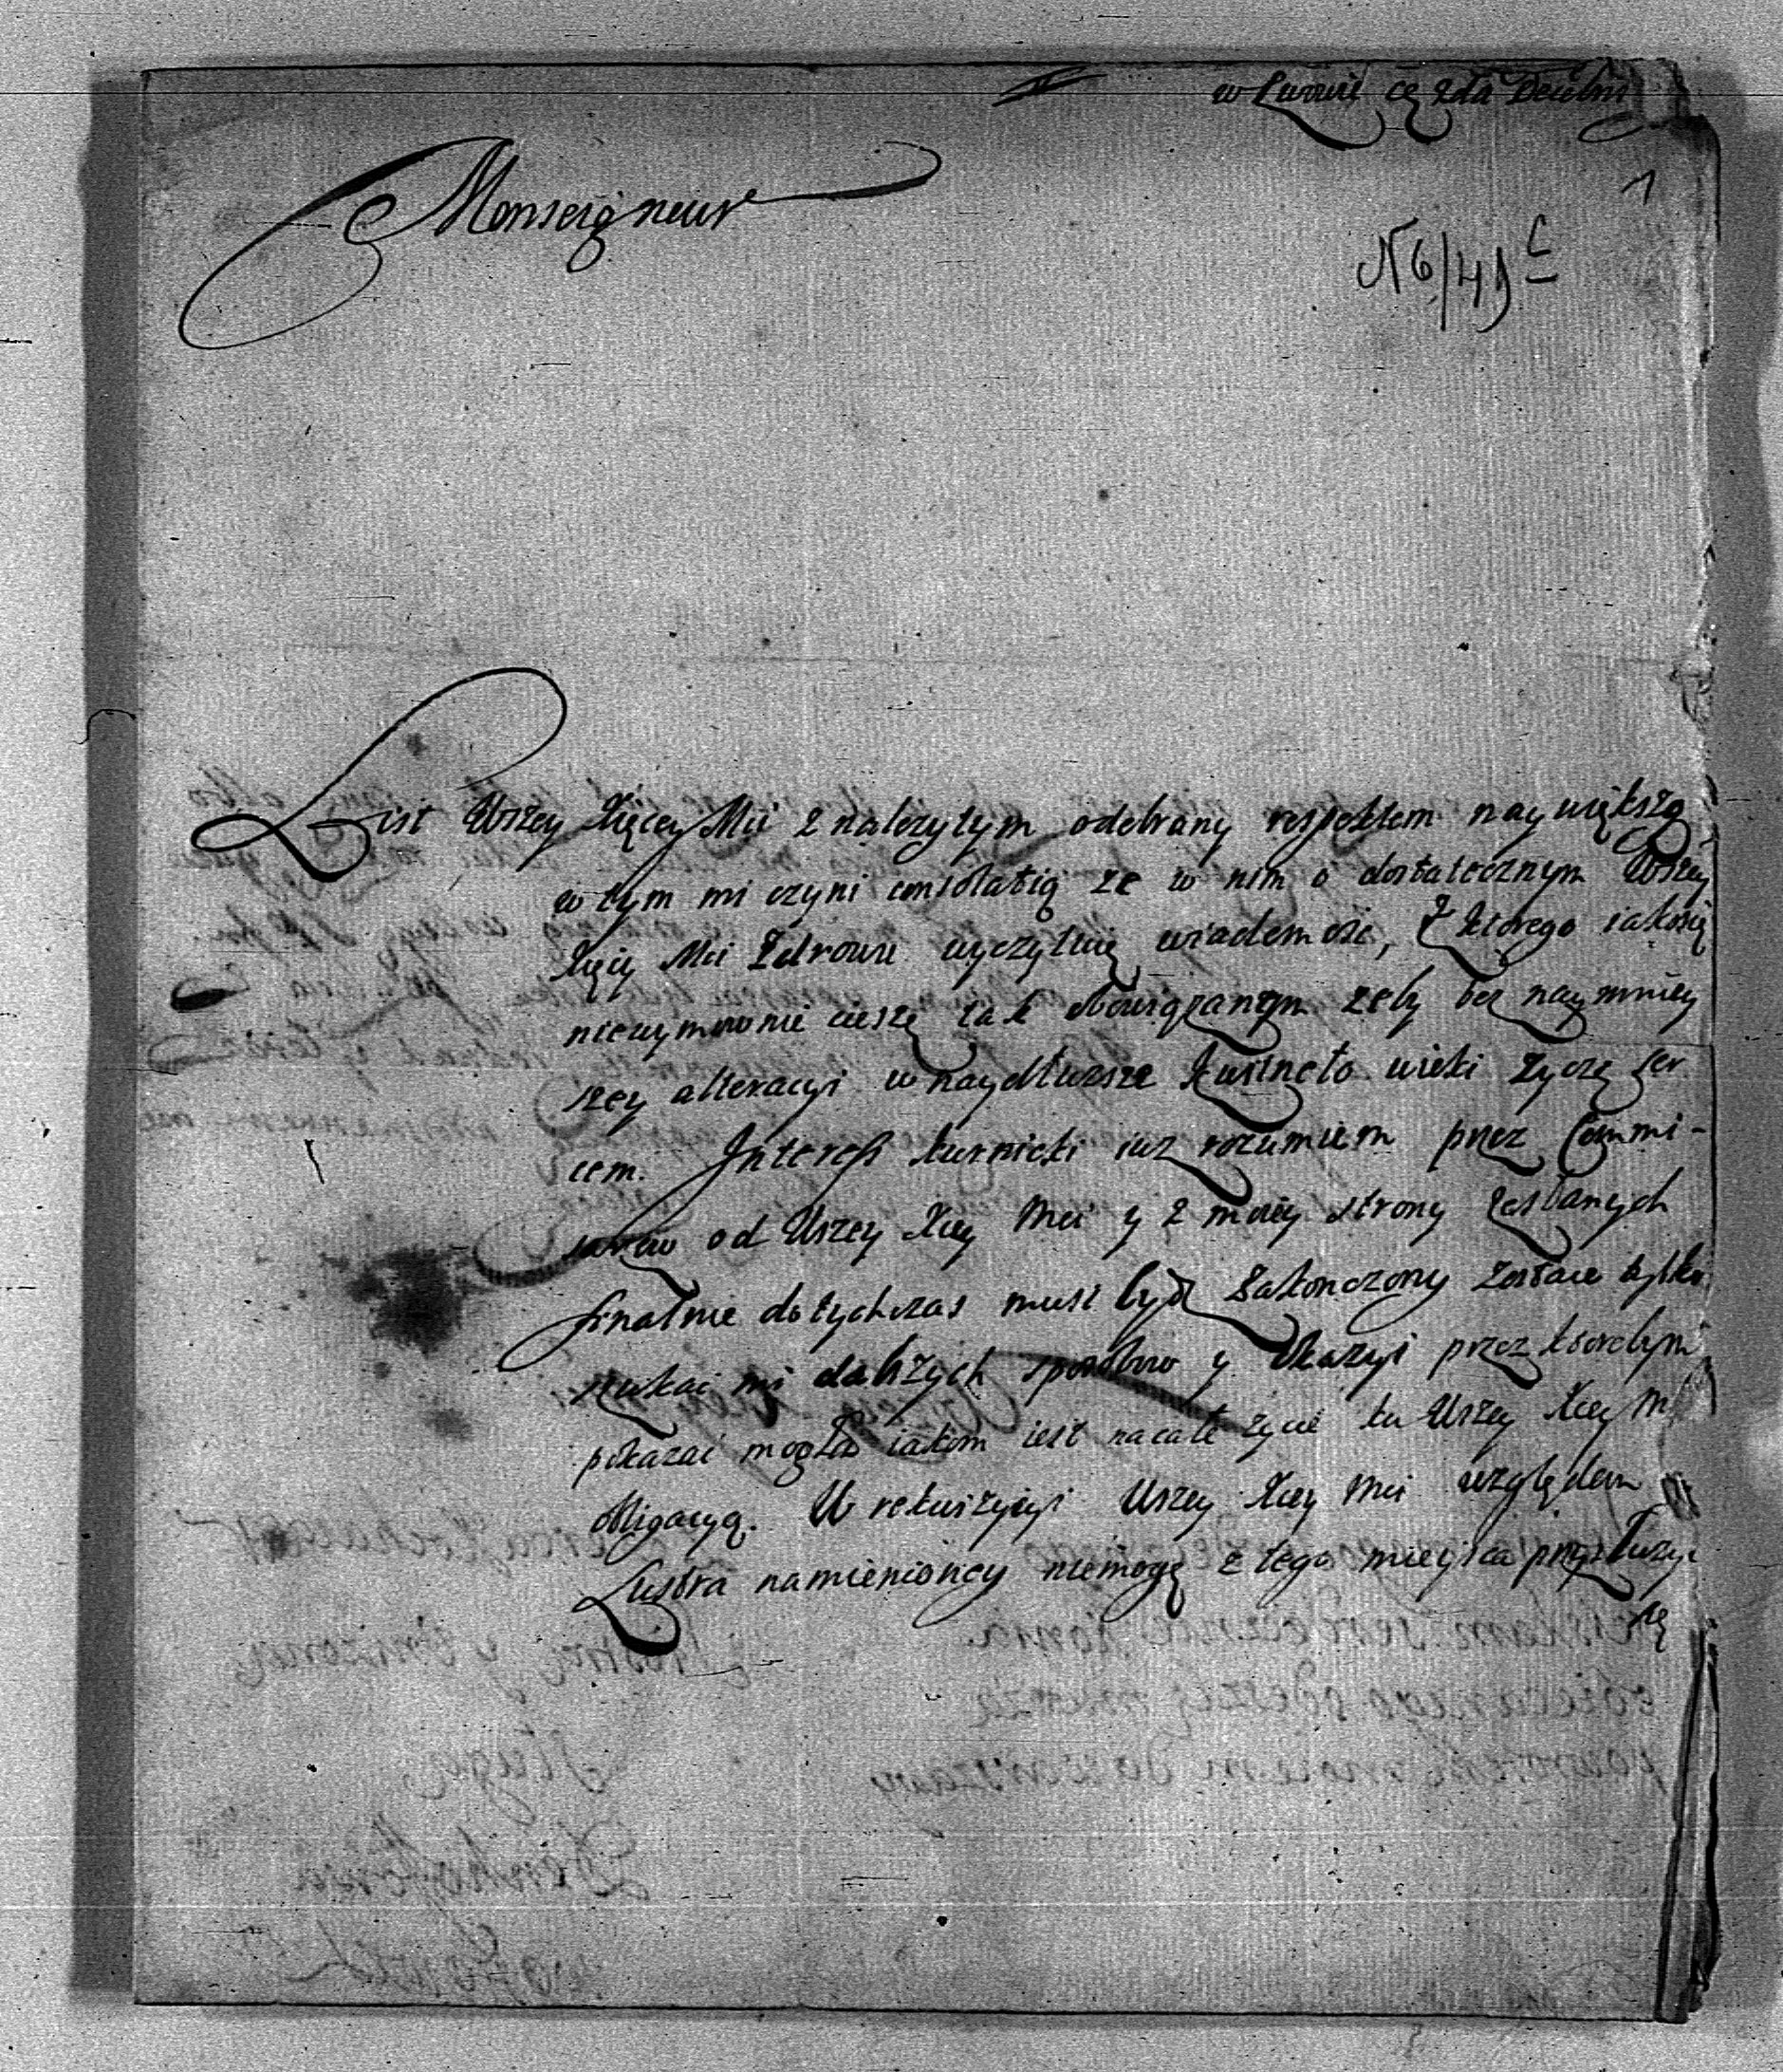 w Lwowie
Monseigneur
1
N 6/49 c
List Wszey Xięcey Mci z należytym odebrany respektem naywiększą
w tym mi czyni consolatią że w nim o dostatecznym Wszey
Xięcy Mci Zdrowiu wyczytuię wiadomość, z ktorego iakosię
niewymownie cieszę tak obowiązanym żeby bez naymniey
szey alteracyi w naydłuższe kwitneło wieki życzę ser
cem. Interess kurnicki iuż rozumiem przez Commi-
sarzow od Wszey Xcey Mci y z moiey strony zesłanych
finalnie dotychczas musi bydz zakonczony zostaie tylko
szukać mi dalszych sposobow y Okazyi przez ktorebym
pokazać mogła iakom iest nacałe życie ku Wszey Xcey M
Obligacyą. W rekwizycyi Wszey Xcey Mci względem
Lustra namienioney niemogę z tego mieysca przysłużyc
się